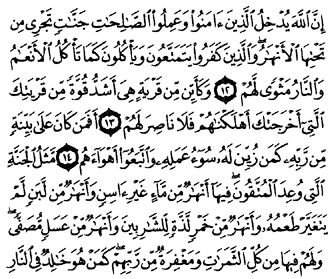 إِنَّ ٱللَّهَ يُدْخِلُ ٱلَّذِينَ ءَامَنُوا۟ وَعَمِلُوا۟ ٱلصَّـٰلِحَـٰتِ جَنَّـٰتٍ تَجْرِى مِن
تَحْتِهَا ٱلْأَنْهَـٰرُ ۖ وَٱلَّذِينَ كَفَرُوا۟ يَتَمَتَّعُونَ وَيَأْكُلُونَ كَمَا تَأْكُلُ ٱلْأَنْعَـٰمُ
وَٱلنَّارُ مَثْوًى لَّهُمْ ﴿١٢﴾ وَكَأَيِّن مِّن قَرْيَةٍ هِىَ أَشَدُّ قُوَّةً مِّن قَرْيَتِكَ
ٱلَّتِىٓ أَخْرَجَتْكَ أَهْلَكْنَـٰهُمْ فَلَا نَاصِرَ لَهُمْ ﴿١٣﴾ أَفَمَن كَانَ عَلَىٰ بَيِّنَةٍ
مِّن رَّبِّهِۦ كَمَن زُيِّنَ لَهُۥ سُوٓءُ عَمَلِهِۦ وَٱتَّبَعُوٓا۟ أَهْوَآءَهُم ﴿١٤﴾ مَّثَلُ ٱلْجَنَّةِ
ٱلَّتِى وُعِدَ ٱلْمُتَّقُونَ ۖ فِيهَآ أَنْهَـٰرٌ مِّن مَّآءٍ غَيْرِ ءَاسِنٍ وَأَنْهَـٰرٌ مِّن لَّبَنٍ لَّمْ
يَتَغَيَّرْ طَعْمُهُۥ وَأَنْهَـٰرٌ مِّنْ خَمْرٍ لَّذَّةٍ لِّلشَّـٰرِبِينَ وَأَنْهَـٰرٌ مِّنْ عَسَلٍ مُّصَفًّى ۖ
وَلَهُمْ فِيهَا مِن كُلِّ ٱلثَّمَرَٰتِ وَمَغْفِرَةٌ مِّن رَّبِّهِمْ ۖ كَمَنْ هُوَ خَـٰلِدٌ فِى ٱلنَّارِ